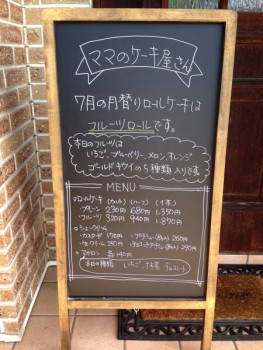 ママのケーキ屋さん
7月の月替りロールケーキは
フルーツロールです。
本日のフルーツは
いちご、ブルーベリー、メロン、オレンジ
ゴールドキウイの5種類入りです
MENU
ロールケーキ (カット) (ハーフ) (1本)
・プレーン 230円 680円 1,350円
・フルーツ 320円 940円 1,870円
シュークリーム
・カスタード 170円
・生クリーム 250円
・マカロン 各140円
本日の種類 いちご、抹茶